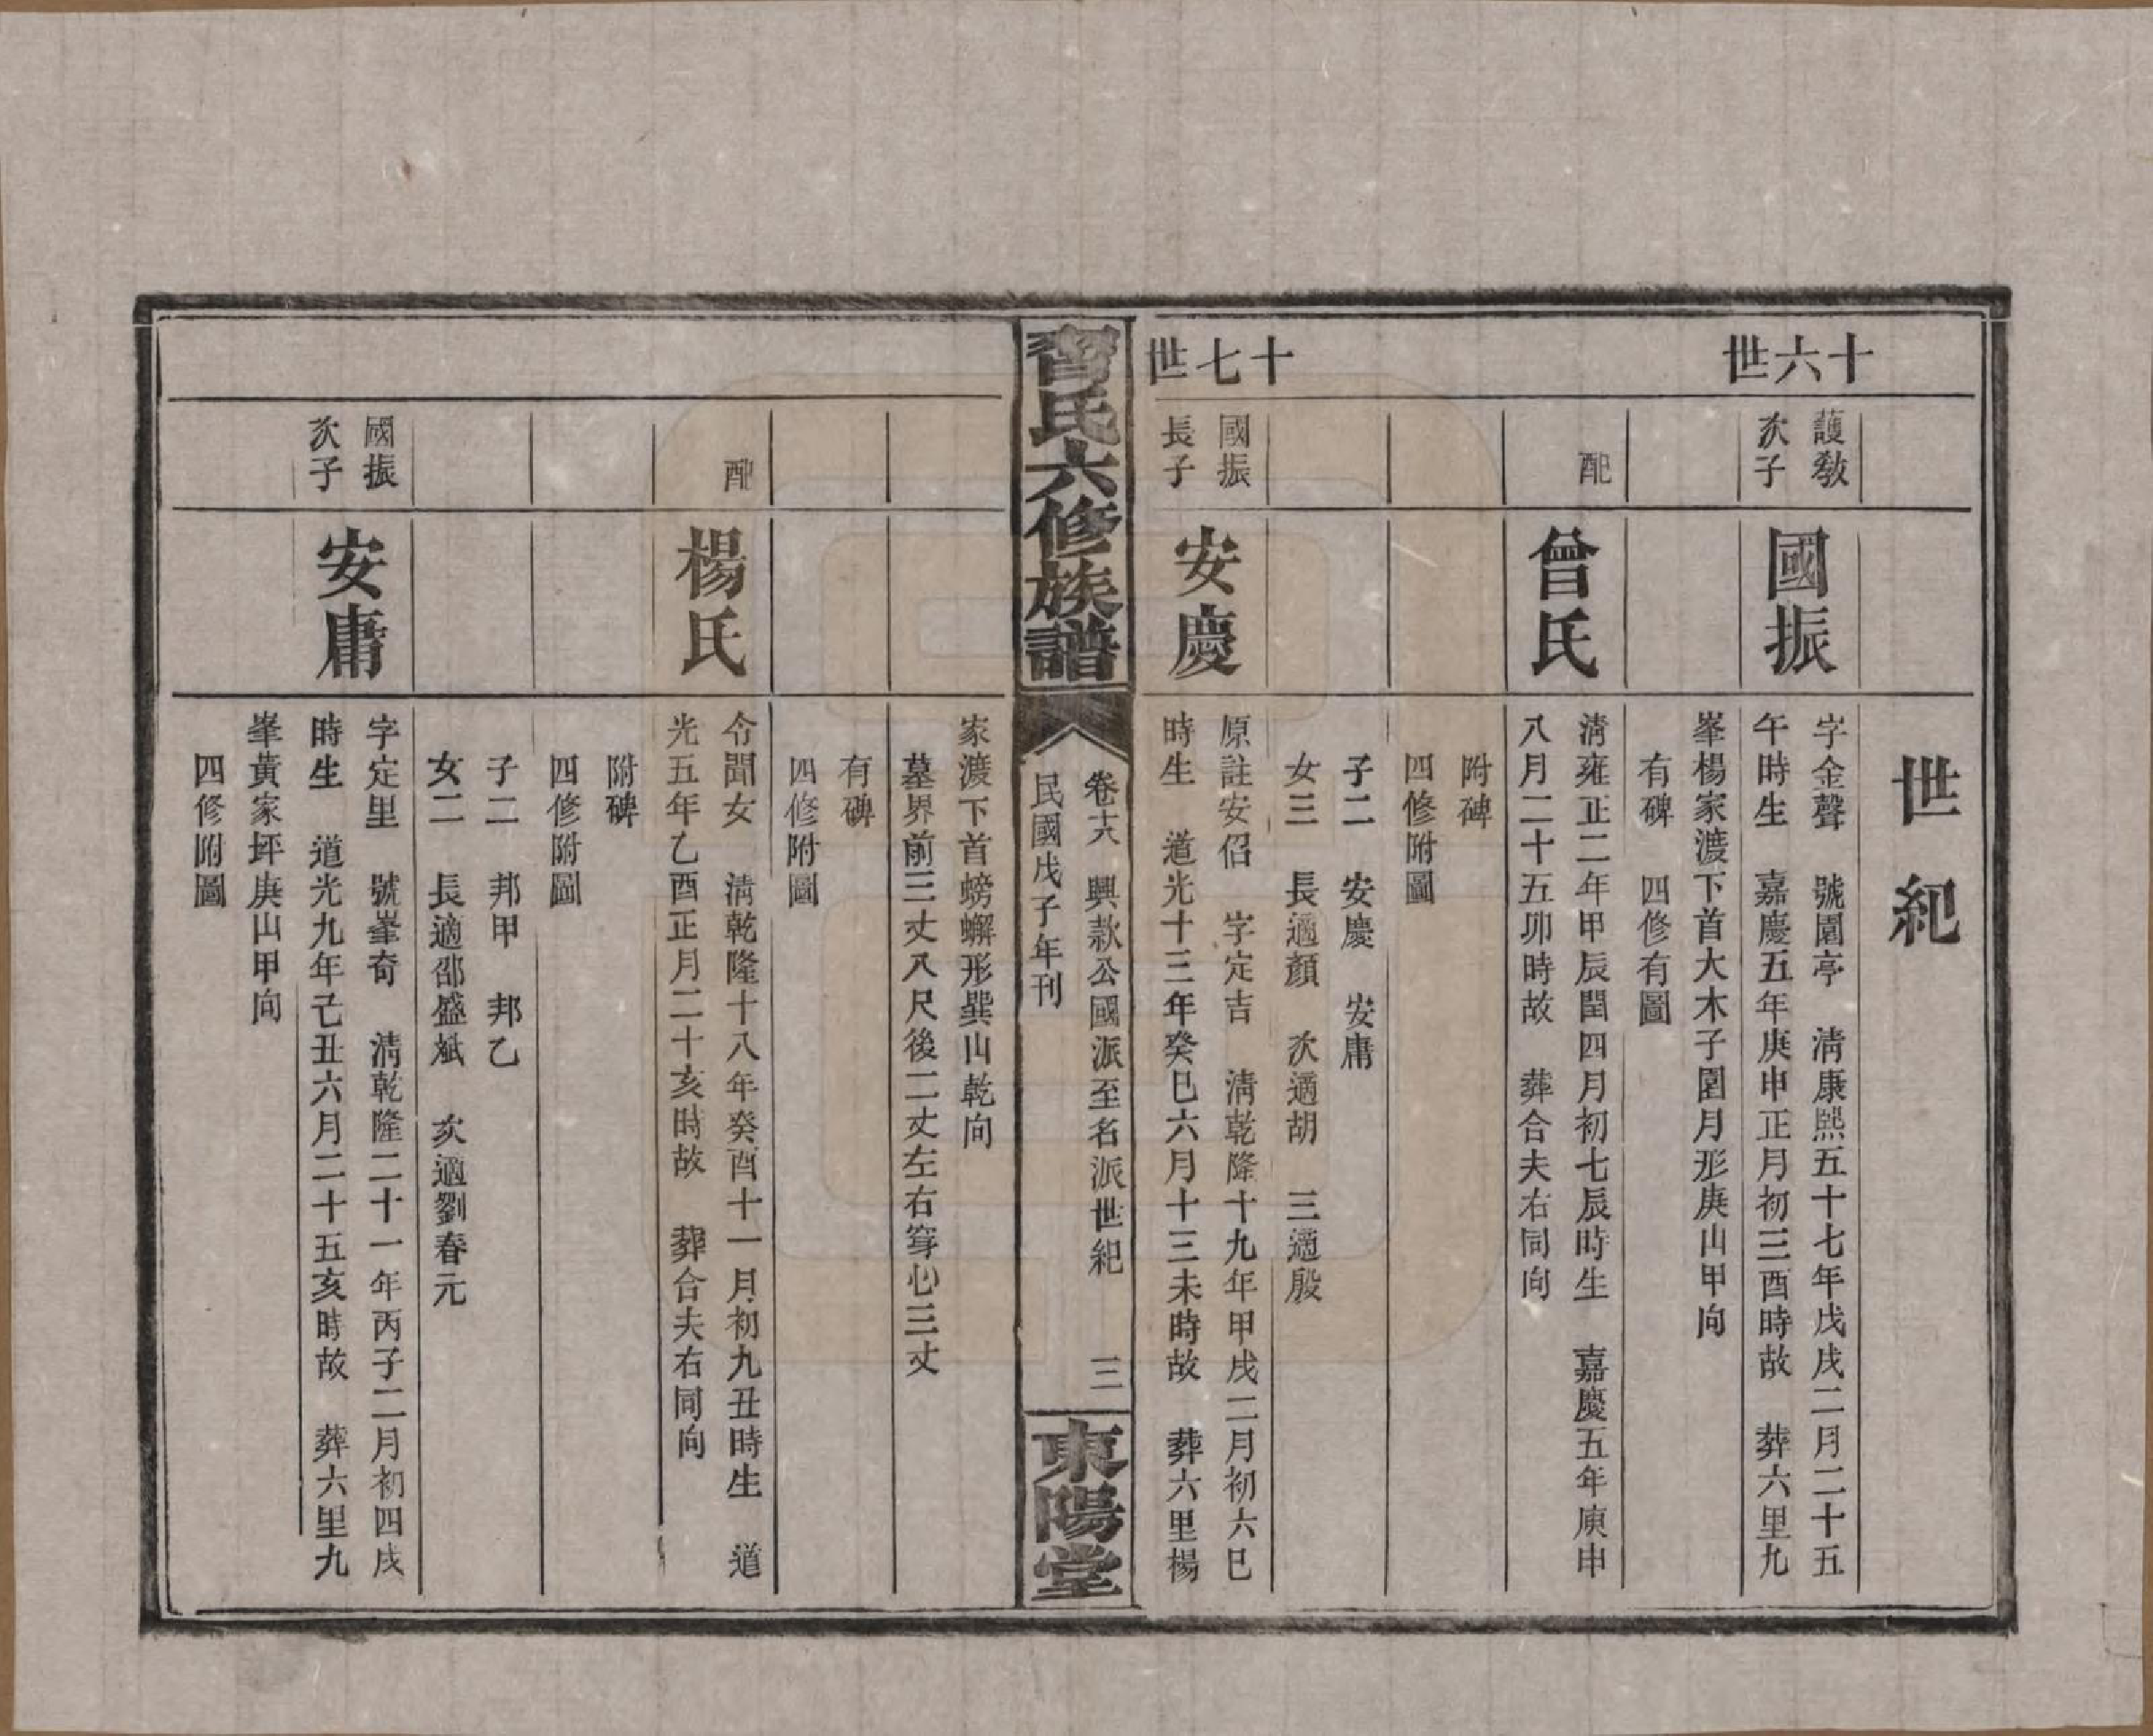 世紀
十六世
護教
次子
國振
字金聲　號園亭　淸康熙五十七年戊戌二月二十五
午時生　嘉慶五年庚申正月初三酉時故　葬六里九
峯楊家渡下首大木子園月形庚山甲向
有碑　四修有圖
配
曾氏
淸雍正二年甲辰閏四月初七辰時生　嘉慶五年庚申
八月二十五卯時故　葬合夫右同向
附碑
四修附圖
子二　安慶　安庸
女三　長適顏　次適胡　三適殷
十七世
國振
長子
安慶
原註安佋　字定吉　淸乾隆十九年甲戌二月初六巳
時生　道光十三年癸巳六月十三未時故　葬六里楊
習氏六修族譜
卷十六　興款公國派至名派世紀　三
民國戊子年刊
東陽堂
家渡下首螃蠏形巽山乾向
墓界前三丈八尺後二丈左右穿心三丈
有碑
四修附圖
配
楊氏
令聞女　淸乾隆十八年癸酉十一月初九丑時生　道
光五年乙酉正月二十亥時故　葬合夫右同向
附碑
四修附圖
子二　邦甲　邦乙
女二　長適邵盛斌　次適劉春元
國振
次子
安庸
字定里　號峯奇　淸乾隆二十一年丙子二月初四戌
時生　道光九年己丑六月二十五亥時故　葬六里九
峯黃家坪庚山甲向
四修附圖